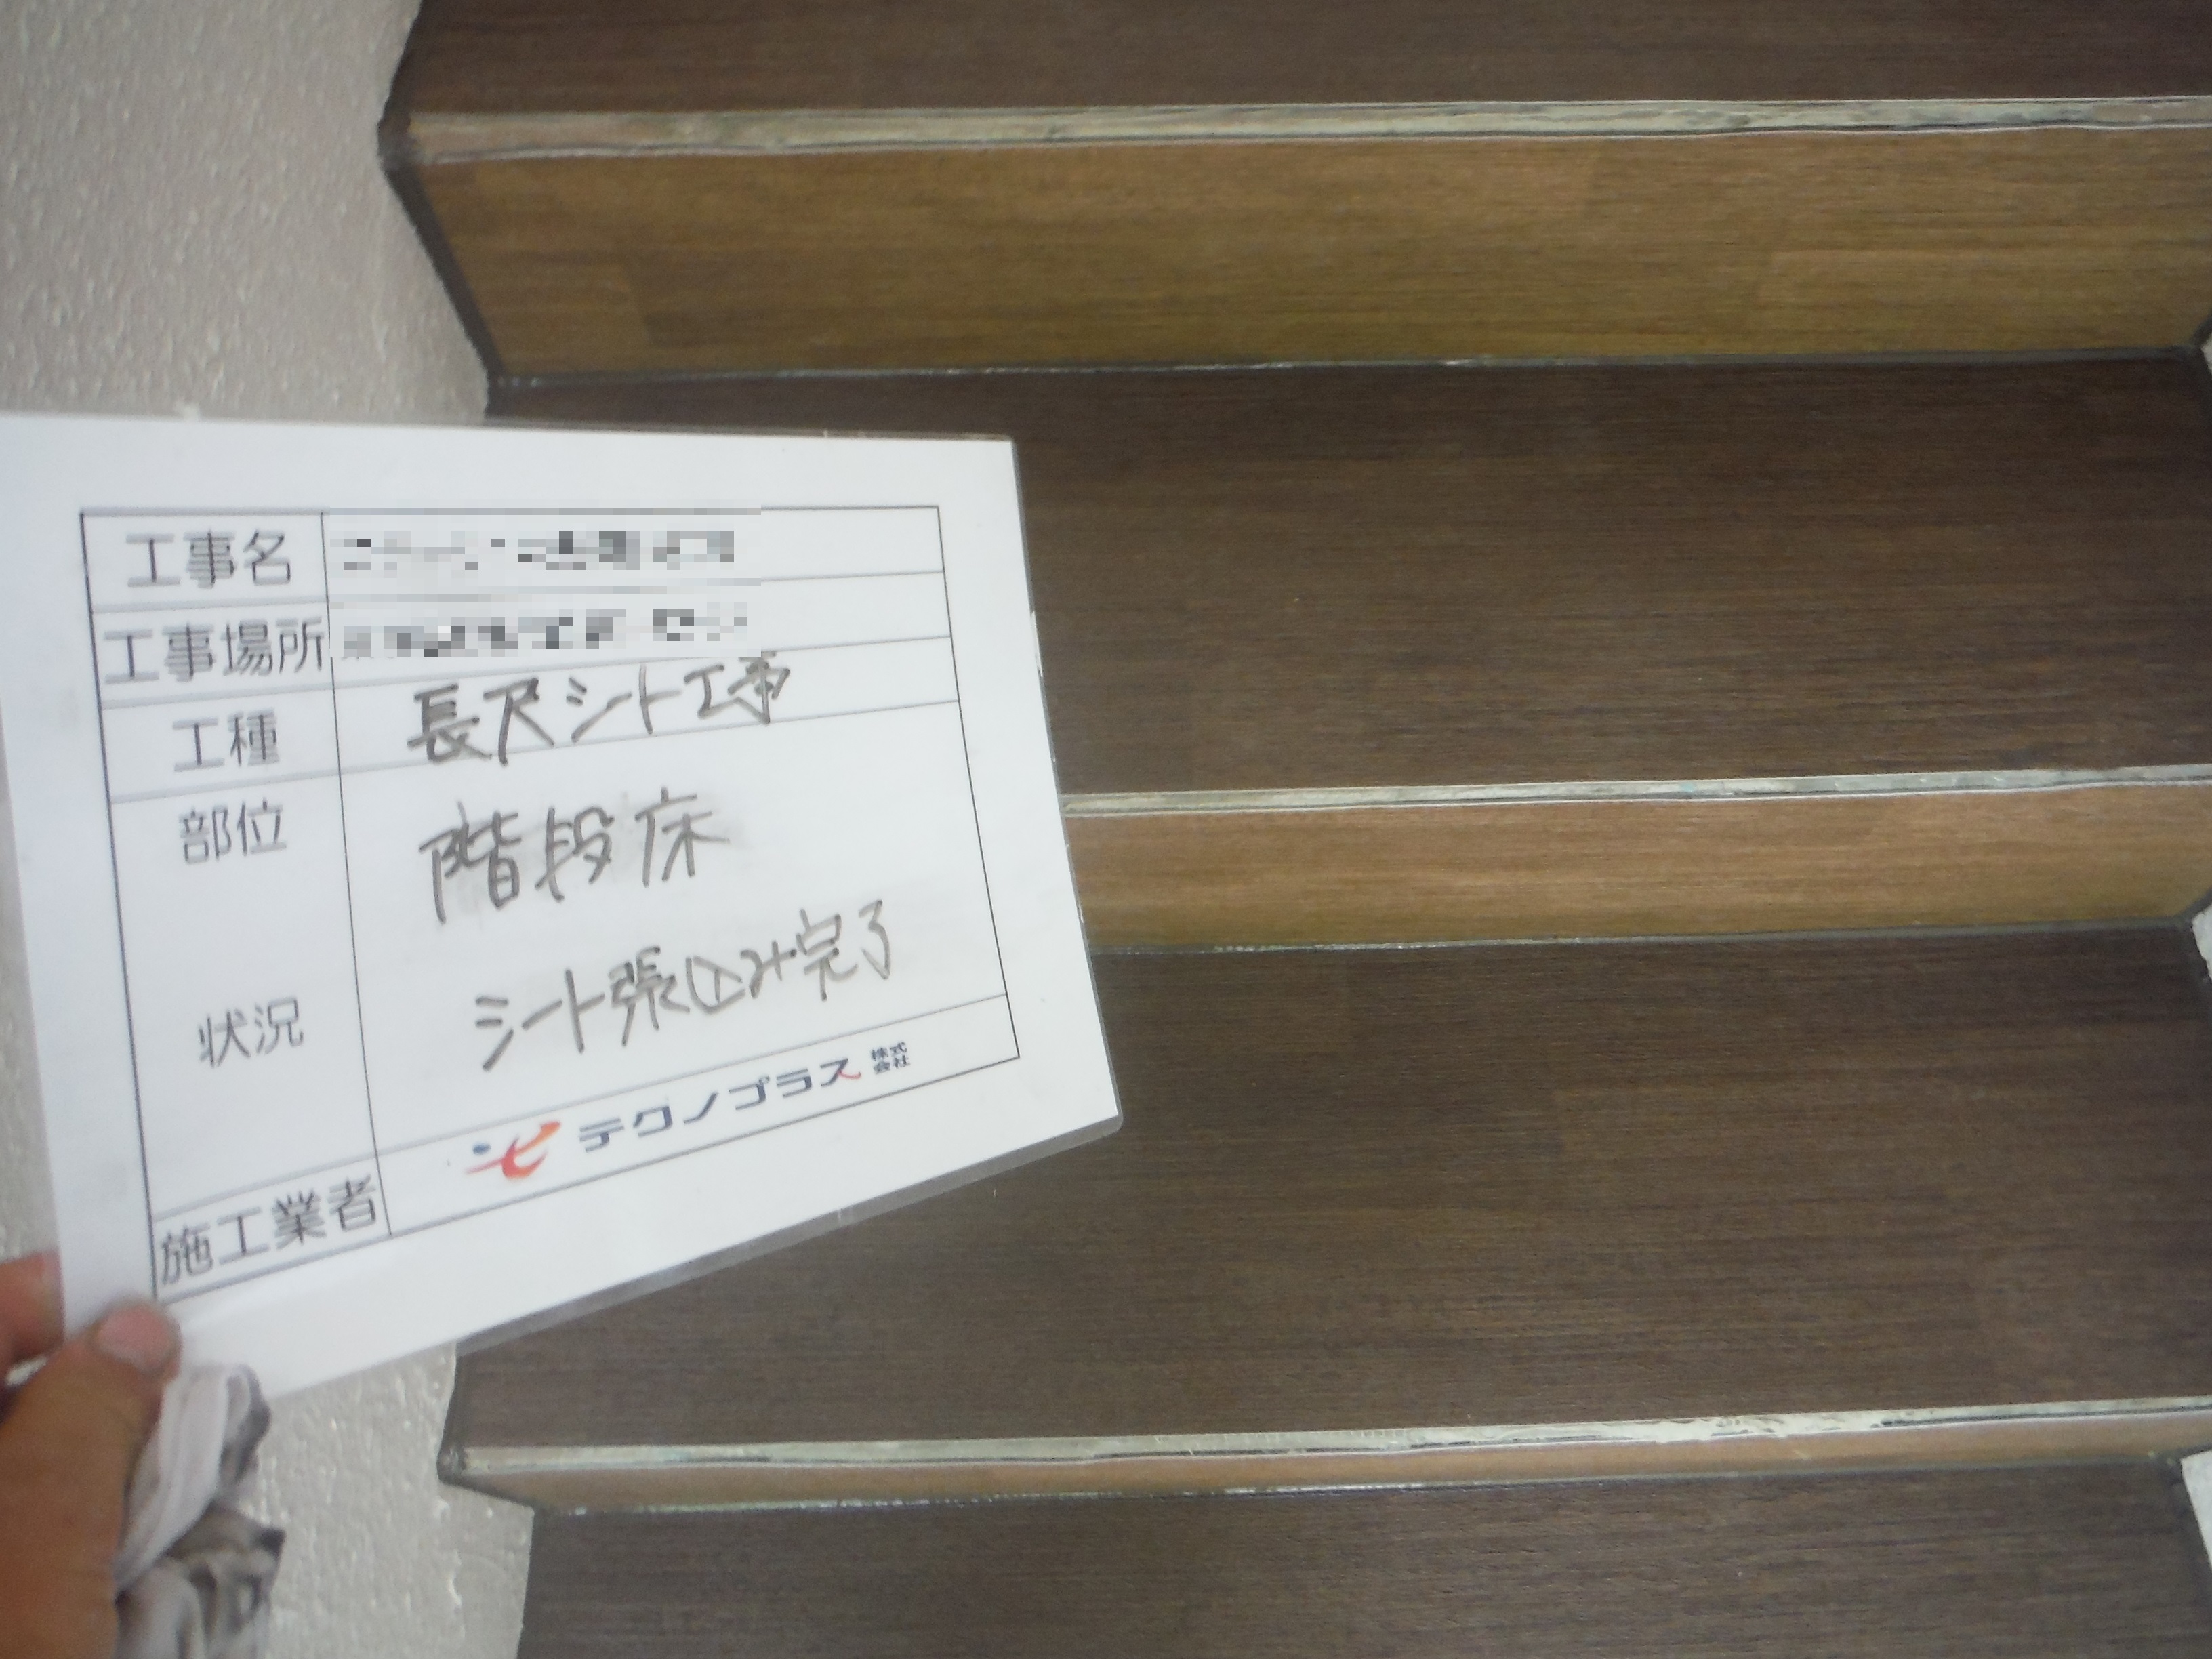 工事名
工事場所
工種 長尺シート工事
部位 階段床
状況 シート張込み完了
施工業者 テクノプラス株式会社